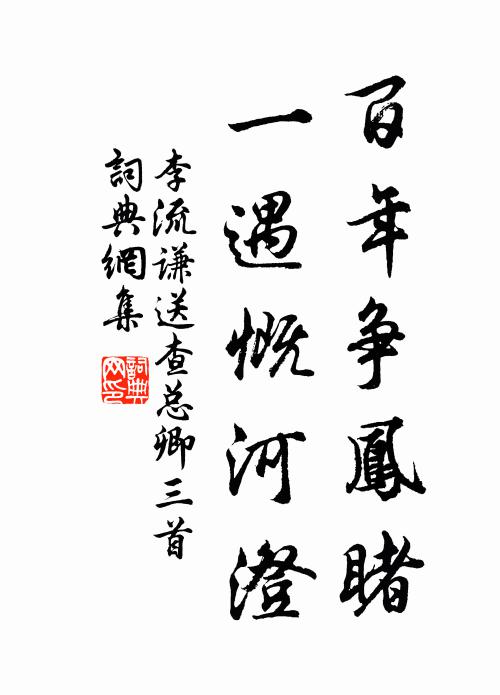 百年争鳳睹
一遇慨河澄
李流谦送查总卿三首
詞典網集
詞典网印